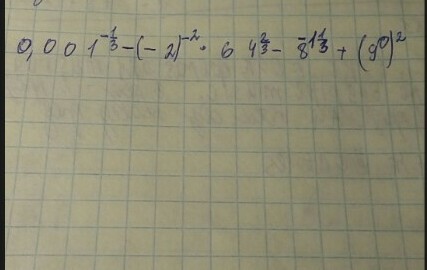 0,001^{-\frac{1}{3}} - (-2)^{-2} \cdot 64^{\frac{2}{3}} - 8^{-1\frac{1}{3}} + (9^0)^2